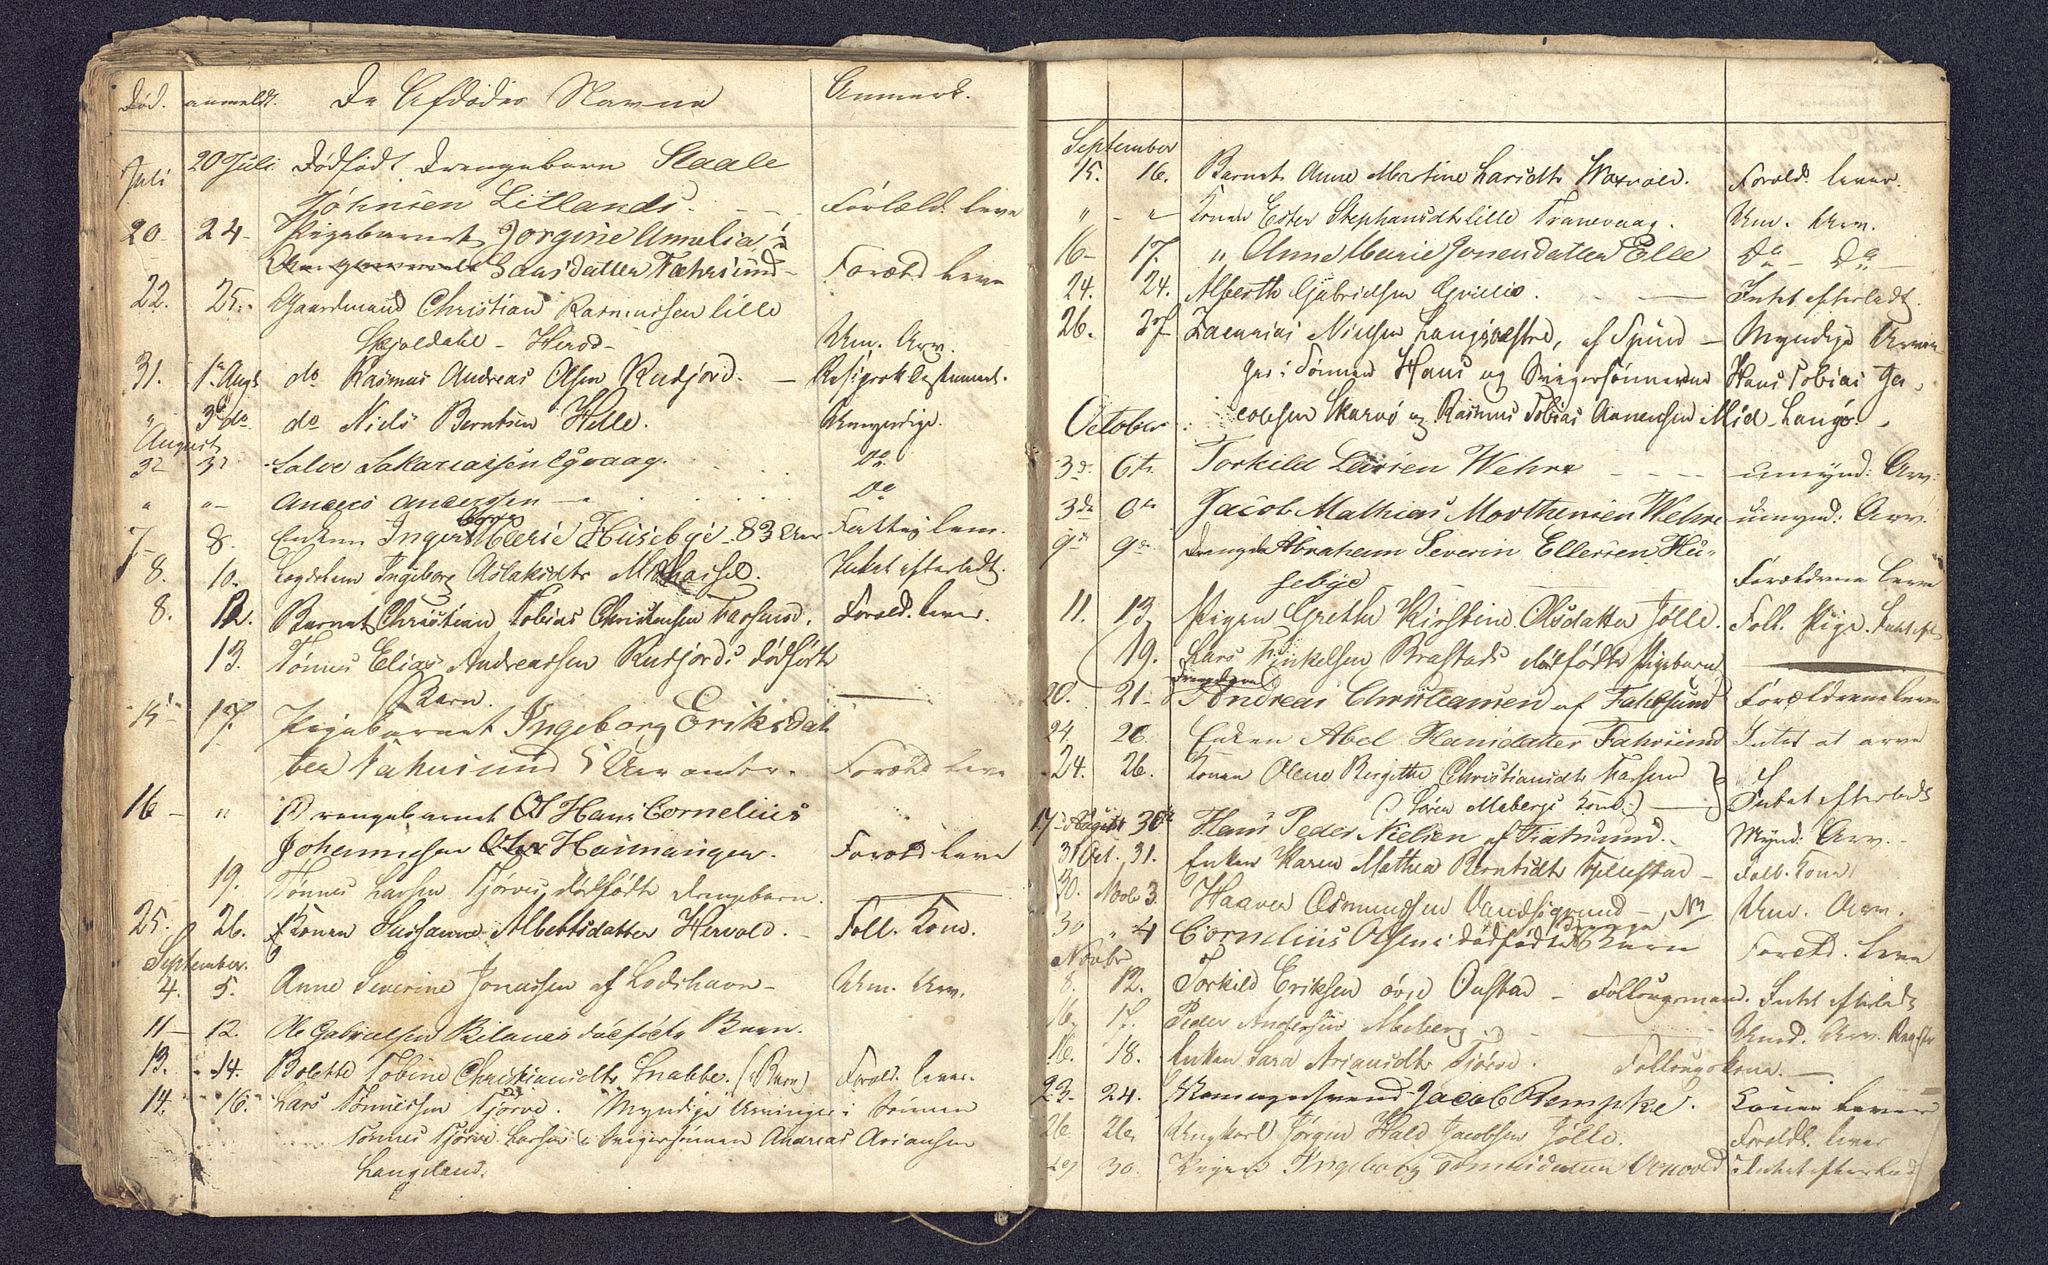 Død. anmeldt. De Afdødes Navne Anmerk.
Juli 20 Juli Dødfødt Drengebarn Staale
Johnsen Litlands. Foræld. leve
20 24 Pigebarnet Jorgine Amalia
Larsdatter Fahrsund Foræld leve
22. 25. Gaardmand Christian Rasmussen lille
Skjoldahl - Herod - Um. Arv.
31. 1ste Augt do Rasmus Andreas Olsen Rudjord.
" 3de do do Niels Berntsen Helle. Umyndige.
August
3 3 Salve Sakariassen Egvaag. Do
" " Anders Andersen Do
7 8. Enken Inger Elerie Husebye 83 Aar Fattig lem.
8. 10. Logslem Ingeborg Aslaksdtr Midhassel. Intet efterladt.
8. 12. Barnet Christian Tobias Christensen Farsund. Foræld. lever.
13. Tønnes Elias Andreassen Rudjords dødfødte
Barn.
15 17. Pigebarnet Ingeborg Eriksdat
ter Fahrsund 5 Aar Foræld leve
16 " Drengebarnet Hans Cornelius
Johannesen Haimanger. Foræld leve
19. Tønnes Larsen Tjørves dødfødte Drengebarn.
25. 26. Konen Susanne Albertsdatter Hervold. Foll. Kone.
September.
4. 5. Anne Severine Jonassen af Lodshavn - Um. Arv.
11 12. Ole Gabrielsen Bilanes dødfødte Barn.
13. 14. Bolette Tobine Christiansdtr Snabbe. (Barn) Foræld. lever.
14. 16. Lars Tønnessen Tjørve. Myndige Arvinger i Sønnen
Tønnes Tjørve Larsen i Svigersønnen Andreas Ariansen
Langeland.
September
15. 16. Barnet Anne Martine Larsdtr Woxvold. Foræld. lever.
" " Konen Ester Stephansdtr lille Tranevaag. Um. Arv.
16 17. " Anne Marie Jonasdatter Elle Do Do
24. 24. Alberth Gabrielsen Intet efterladt.
26. 27 Zacarias Nielsen Langøvestre, af Spind - Myndige Arven
ger i Sønnen Hans og Svigersønnerne Hans Tobias Ja
cobsen Skarvø og Rasmus Tobias Aanensen Mid-Langø.
October
3de 6te Torkild Larsen Wehre umynd: Arv:
3de 6te Jacob Mathias Morthensen Wehre umynd: Arv.
9de 9de Drengen Abraham Severin Ellersen Hu-
sebye Forældrene leve
11. 13 Pigen Grethe Kirstine Olsdatter Jølle. Foll. Pige.
19. Lars Brastads dødfødte Pigebarn
20. 21 Drengebarnet Andreas Christiansen af Fahrsund Forældrene leve
24 26 Enken Abel Hansdatter Fahrsund Intet at arve
24. 26. Konen Olene Birgithe Christiansdtr Farsund
(Søren Mebergs Kone) Intet efterladt
17 August 30te Hans Peder Nielsen af Farsund. Mynd: Arv.
31 Oct. 31. Enken Karen Mathea Berntsdtr Fjellestad - Foll. Kone
30. Novb 3. Haaver Osmundsen Um. Arv.
30 " 4 Cornelius Olsens dødfødte Barn Foræld. leve
Novbr
8. 12. Torkild Eriksen øvre Oustad - Follaugsmand. Intet efterladt
16. 17. Peder Andersen Meberg Umd. Arv.
16. 18. Enken Sara Ariansdtr Tjørve. Follaugskone.
23. 24. Jacob Rempke. Konen lever
26 26 Ungkarl Jørgen Hald Jacobsen Jølle. Forældr. lever
29 30 Pigen Ingeborg Intet efterladt